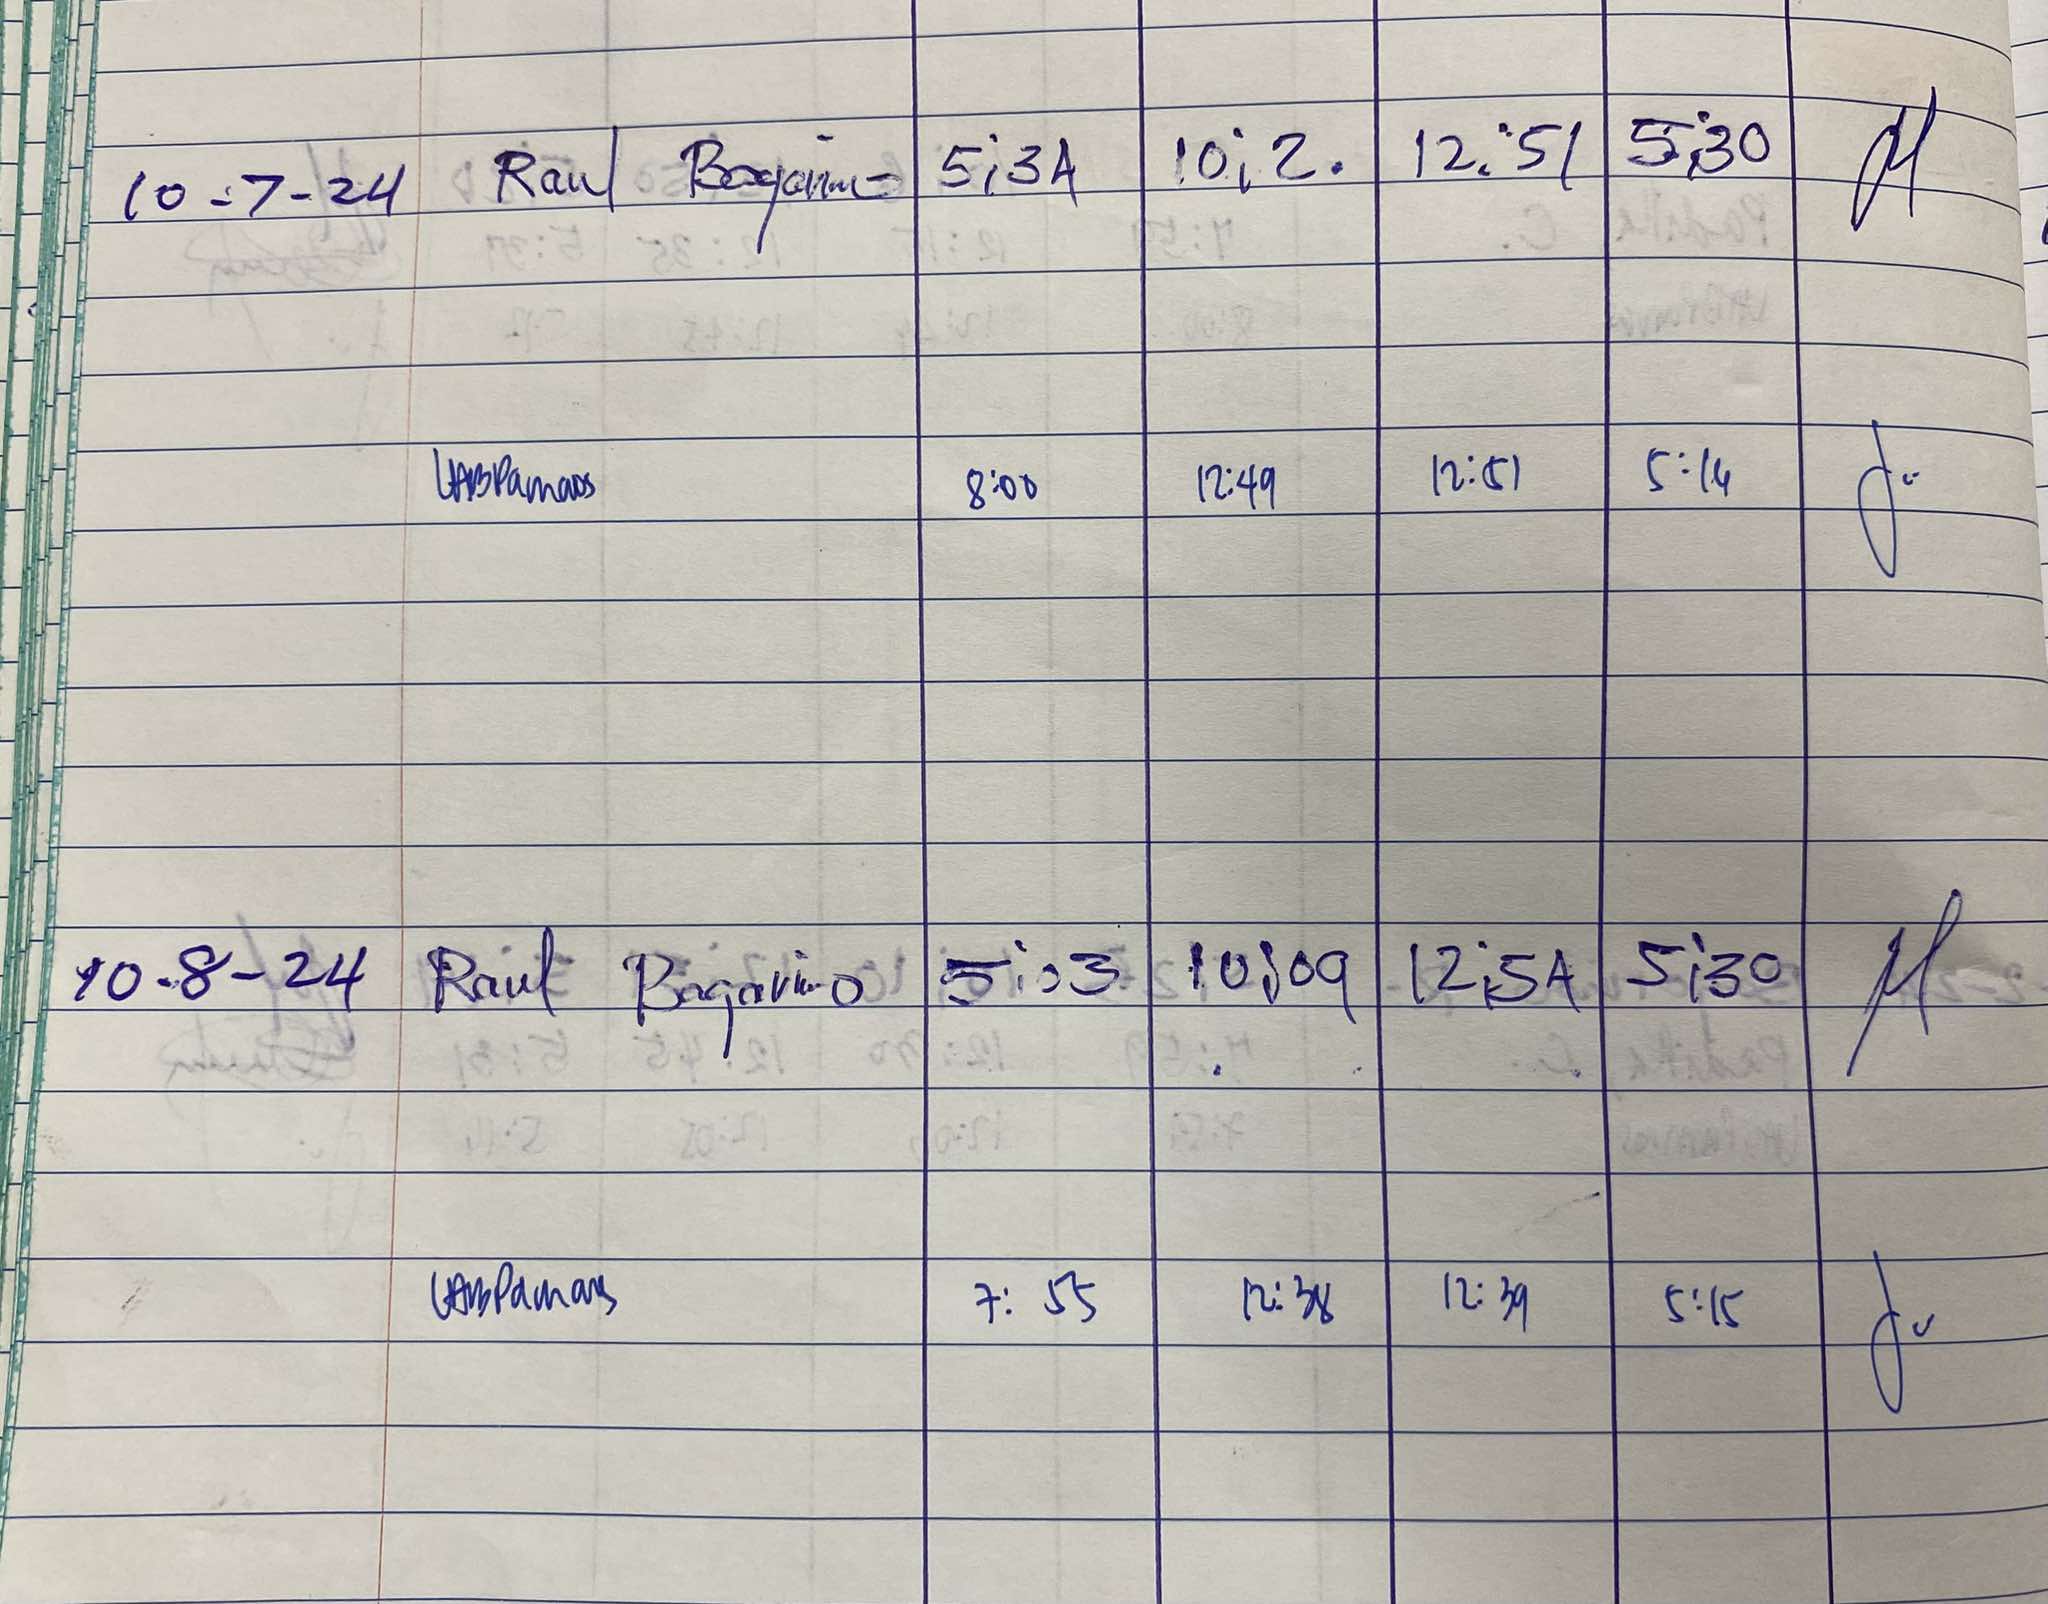 10-7-24 Raul Bagarino 5:34 10:2. 12:51 5:30
LABPamaos 8:00 12:49 12:51 5:14
10-8-24 Raul Bagarino 5:03 10:09 12:54 5:30
LABPamaos 7:55 12:38 12:39 5:15